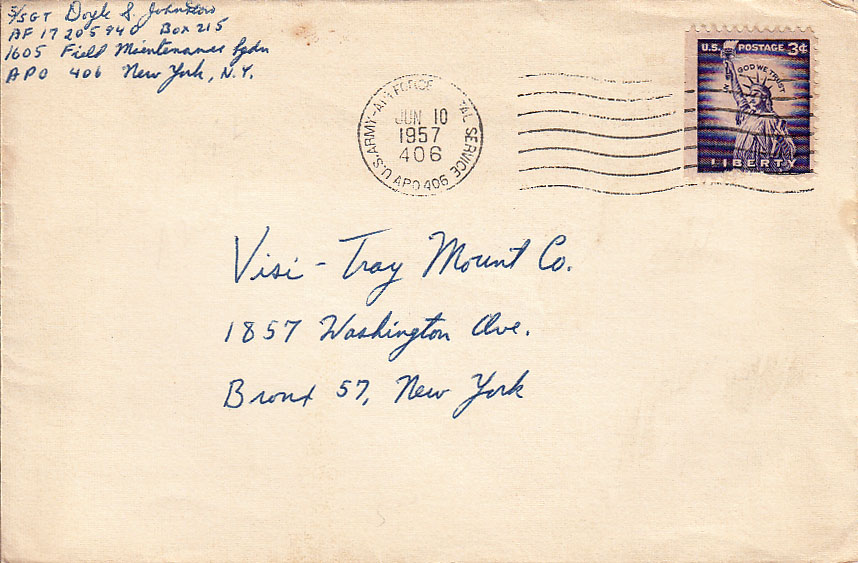 S/SGT Doyle S. Johnston
AF 17205940 Box 215
1605 Field Maintenance Sqdn
APO 406 New York, N.Y.
U.S. ARMY-AIR FORCE POSTAL SERVICE
JUN 10
1957
406
APO 406
U.S. POSTAGE 3¢
IN GOD WE TRUST
LIBERTY
Visi-Tray Mount Co.
1857 Washington Ave.
Bronx 57, New York